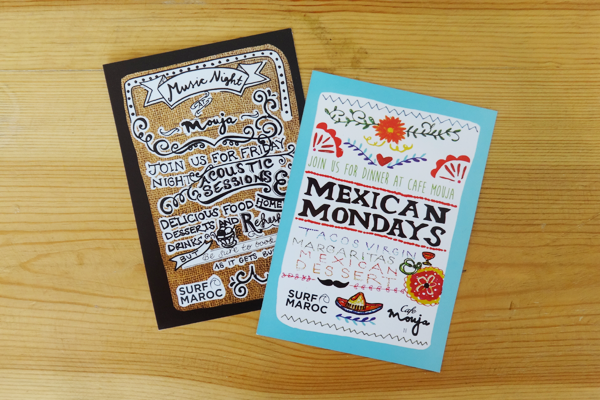 Music Night
Cafe
Mouja
JOIN US FOR FRIDAY
NIGHT ACOUSTIC
SESSIONS &
DELICIOUS FOOD HOME
DESSERTS AND
DRINKS
BUT Be sure to book
AS IT GETS BU
SURF
MAROC
JOIN US FOR DINNER AT CAFE MOUJA
MEXICAN
MONDAYS
TACOS VIRGIN
MARGARITAS
MEXICAN
DESSERT
SURF
MAROC
Cafe
Mouja